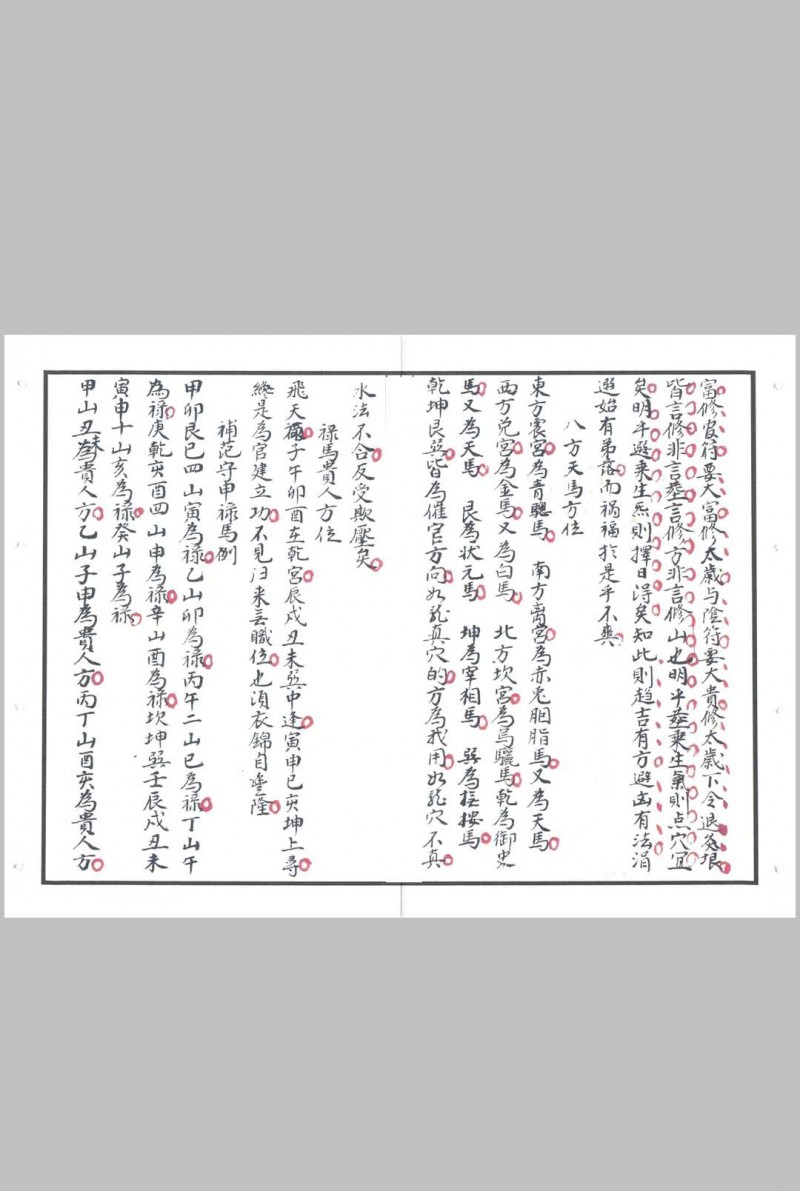 富修官符要大富修太歲与陰符要大貴修太歲下令退灸垠
皆言修非言塟言修方非言修山也明乎塟乘生氣則点穴宜
矣明乎遊来生炁則擇日得矣知此則趋吉有方避凶有法涓
选始有弟落而禍福於是乎不爽
八方天馬方位
東方震宮為青驄馬 南方离宮為赤兎胭脂馬又為天馬
西方兌宮為金馬又為白馬 北方坎宮為烏驪馬乾為御史
馬又為天馬 艮為状元馬 坤為宰相馬 巽為按馬
乾坤艮巽皆為催官方向如龍真穴的方為我用如龍穴不真
水法不合反受欺壓矣
禄馬貴人方位
飛天禄子午卯酉在乾宮辰戌丑未巽中逢寅申巳亥坤上尋
終是為官建立功不見归来无職位也須衣錦自豐隆
補范守申禄馬例
甲卯艮巳四山寅為禄乙山卯為禄丙午二山巳為禄丁山午
為禄庚乾亥酉四山申為禄辛山酉為禄坎坤巽壬辰戌丑未
寅申十山亥為禄癸山子為禄
甲山丑未為貴人方乙山子申為貴人方丙丁山酉亥為貴人方